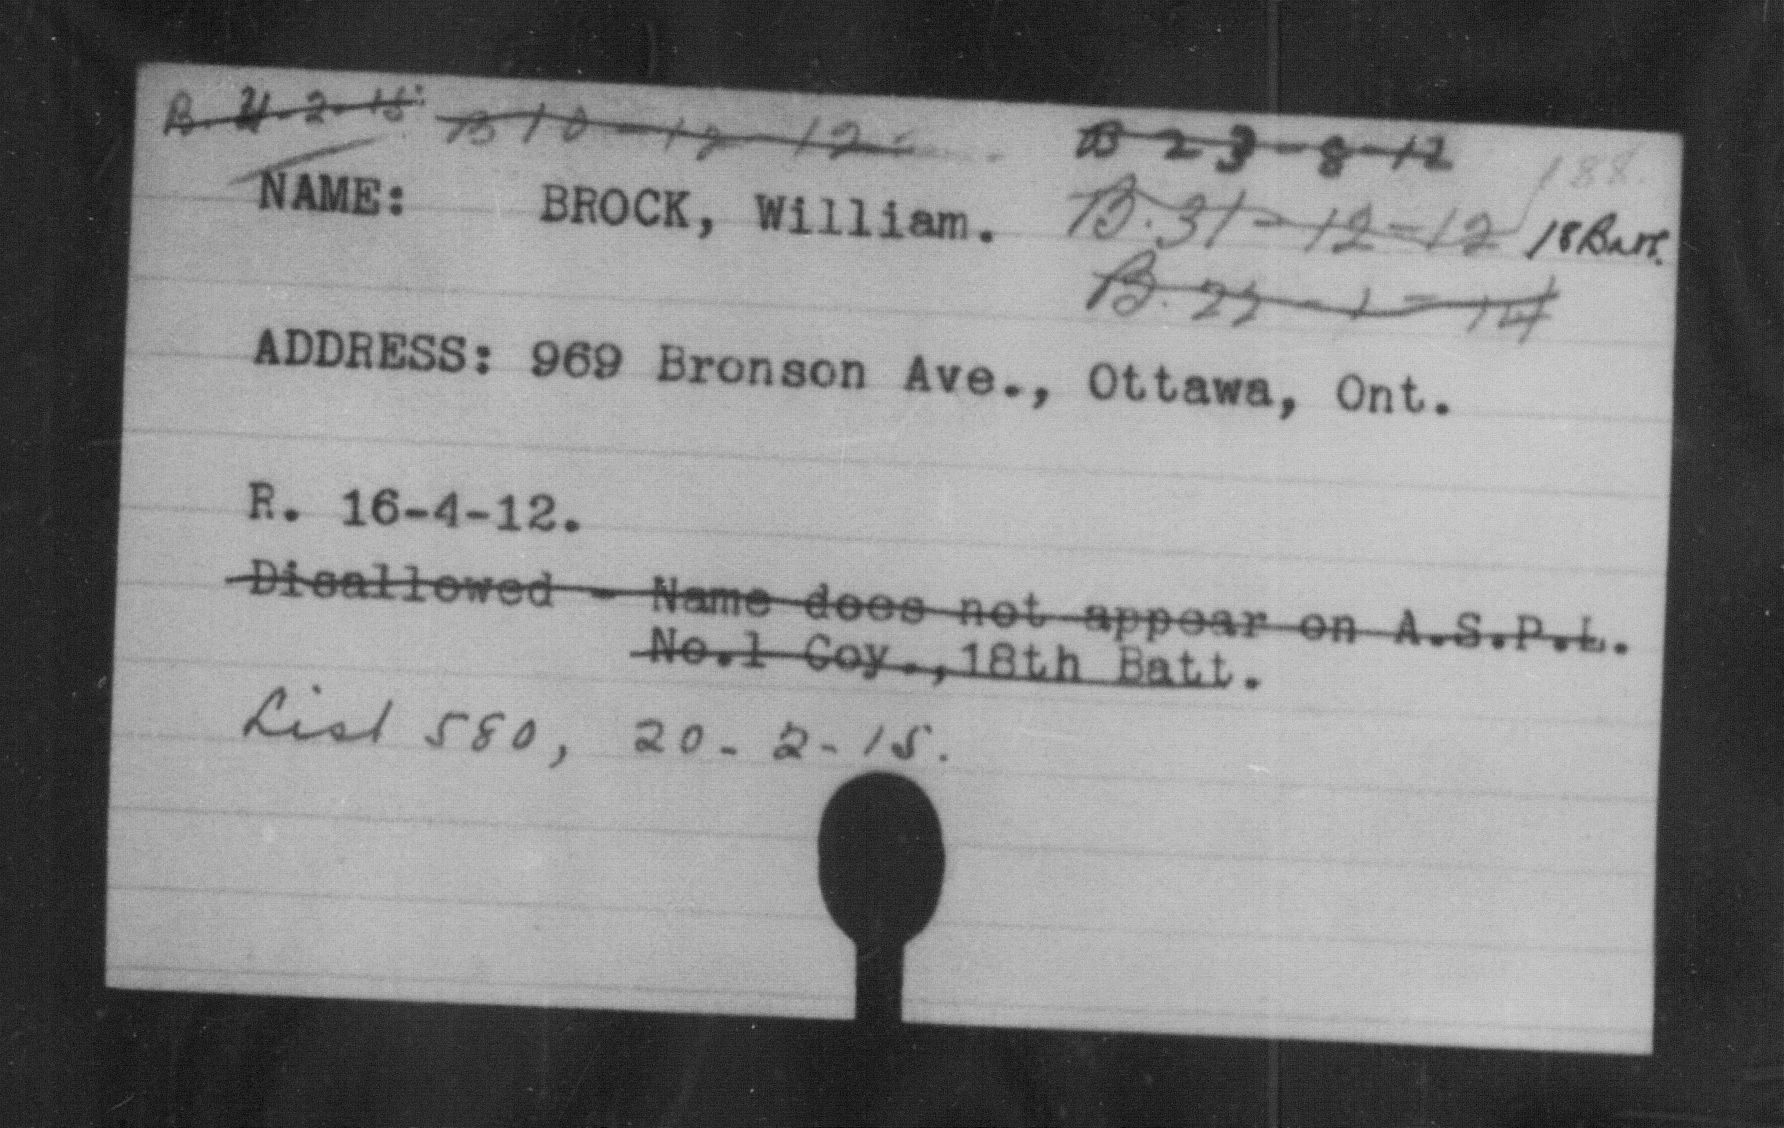 B. 4-2-15. B 10-12-12 B 23-8-12
188.
NAME: BROCK, William. B. 31-12-12 18 Batt.
B. 22-1-14
ADDRESS: 969 Bronson Ave., Ottawa, Ont.
R. 16-4-12.
Disallowed - Name does not appear on A.S.P.L.
No.1 Coy., 18th Batt.
List 580, 20-2-15.